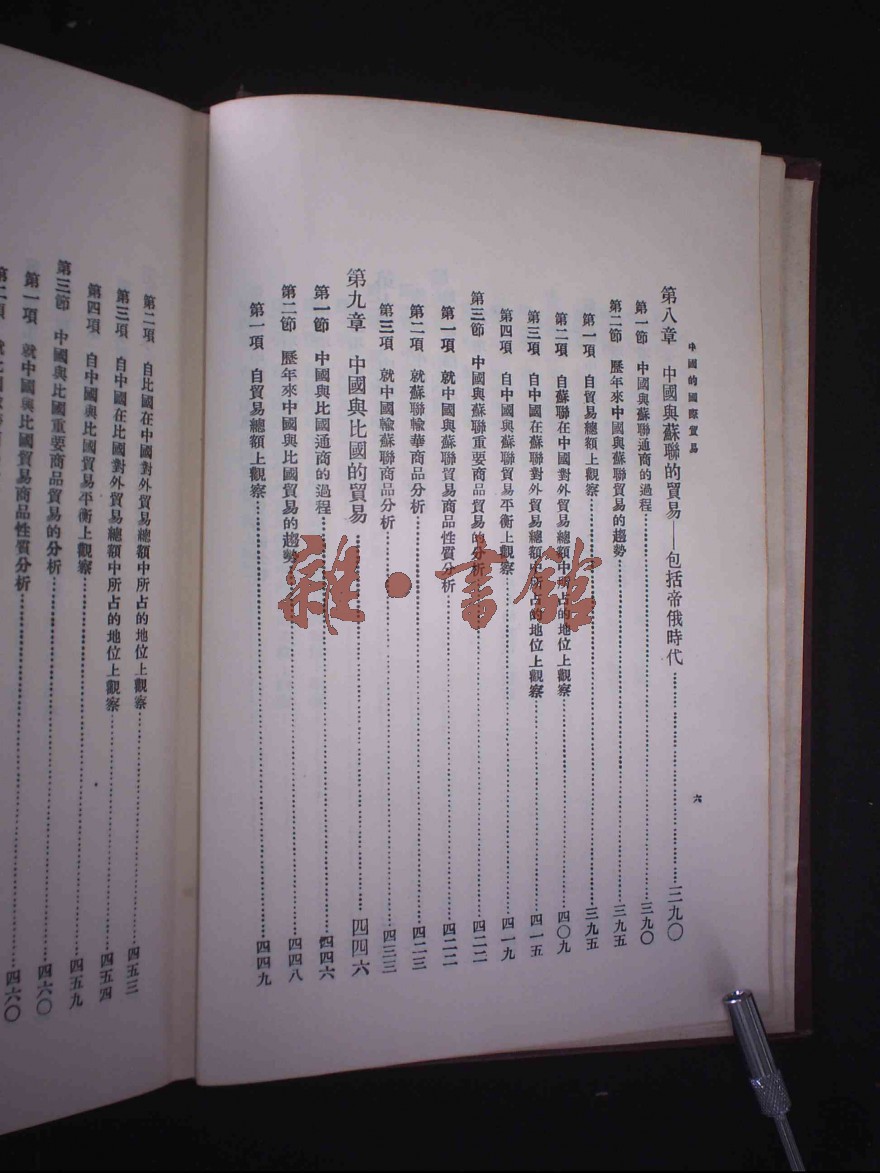 中國的國際貿易
六
第八章 中國與蘇聯的貿易——包括帝俄時代…………三九〇
第一節 中國與蘇聯通商的過程…………三九〇
第二節 歷年來中國與蘇聯貿易的趨勢…………三九五
第一項 自貿易總額上觀察…………三九五
第二項 自蘇聯在中國對外貿易總額中所占的地位上觀察…………四〇九
第三項 自中國在蘇聯對外貿易總額中所占的地位上觀察…………四一五
第四項 自中國與蘇聯貿易平衡上觀察…………四一九
第三節 中國與蘇聯重要商品貿易的分析…………四二二
第一項 就中國與蘇聯貿易商品性質分析…………四二二
第二項 就蘇聯輸華商品分析…………四二三
第三項 就中國輸蘇聯商品分析…………四三三
第九章 中國與比國的貿易…………四四六
第一節 中國與比國通商的過程…………四四六
第二節 歷年來中國與比國貿易的趨勢…………四四八
第一項 自貿易總額上觀察…………四四九
第二項 自比國在中國對外貿易總額中所占的地位上觀察…………四五三
第三項 自中國在比國對外貿易總額中所占的地位上觀察…………四五四
第四項 自中國與比國貿易平衡上觀察…………四五九
第三節 中國與比國重要商品貿易的分析…………四六〇
第一項 就中國與比國貿易商品性質分析…………四六〇
雜·書館